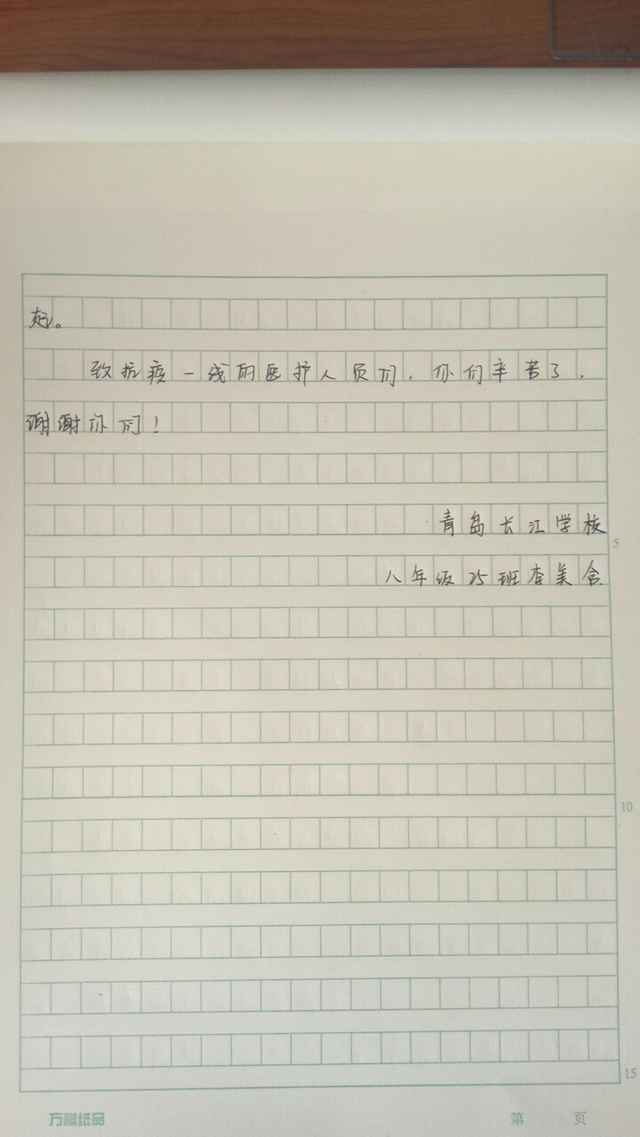 起。
致抗疫一线的医护人员们，你们辛苦了，
谢谢你们！
青岛长江学校
5
八年级25班李美含
10
15
万麒纸品
第 页